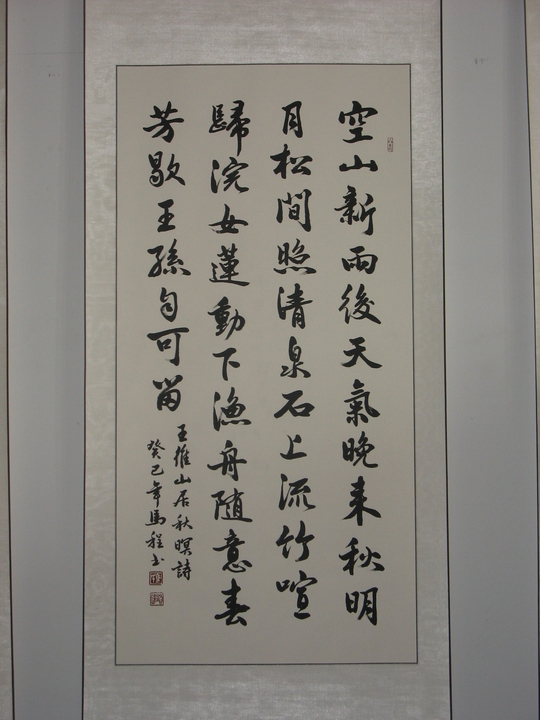 空山新雨後天氣晚来秋明
月松間照清泉石上流竹喧
歸浣女蓮動下漁舟随意春
芳歇王孫自可留
王維山居秋暝詩
癸巳年馬程书